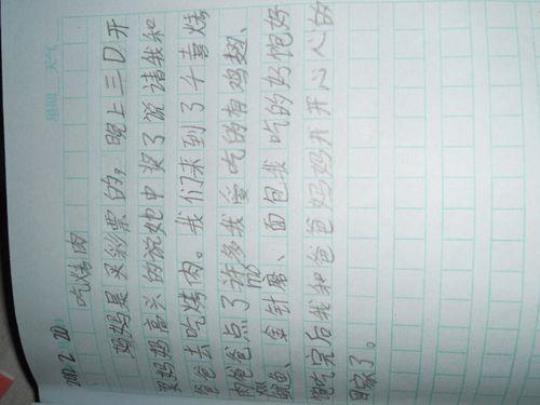 吃烤肉
妈妈是买彩票的，晚上三D开
奖妈妈高兴的说她中奖了说请我和
爸爸去吃烤肉。我们来到了千喜烤
肉爸爸点了许多我爱吃的有鸡翅、
鱿鱼、金针磨、面包我吃的好饱好
饱吃完后我和爸爸妈妈开开心心的
回家了。